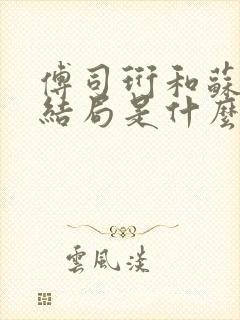 傅司珩和蘇
結局是什麼
雲風淡